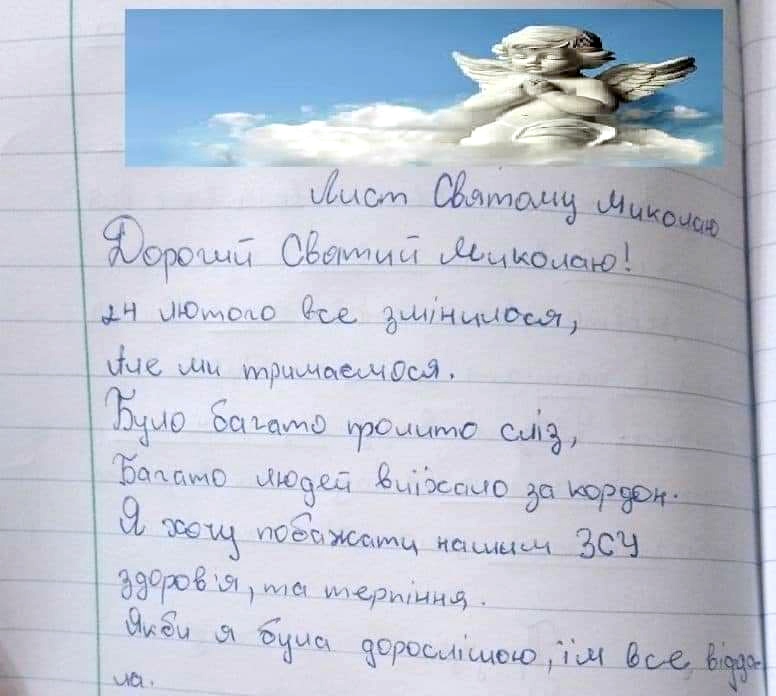 Лист Святому Миколаю
Дорогий Святий Миколаю!
24 лютого все змінилося,
Але ми тримаємося.
Було багато пролито сліз,
Багато людей виїхало за кордон.
Я хочу побажати нашим ЗСУ
здоров'я, та терпіння.
Якби я була дорослішою, їм все відда-
ла.